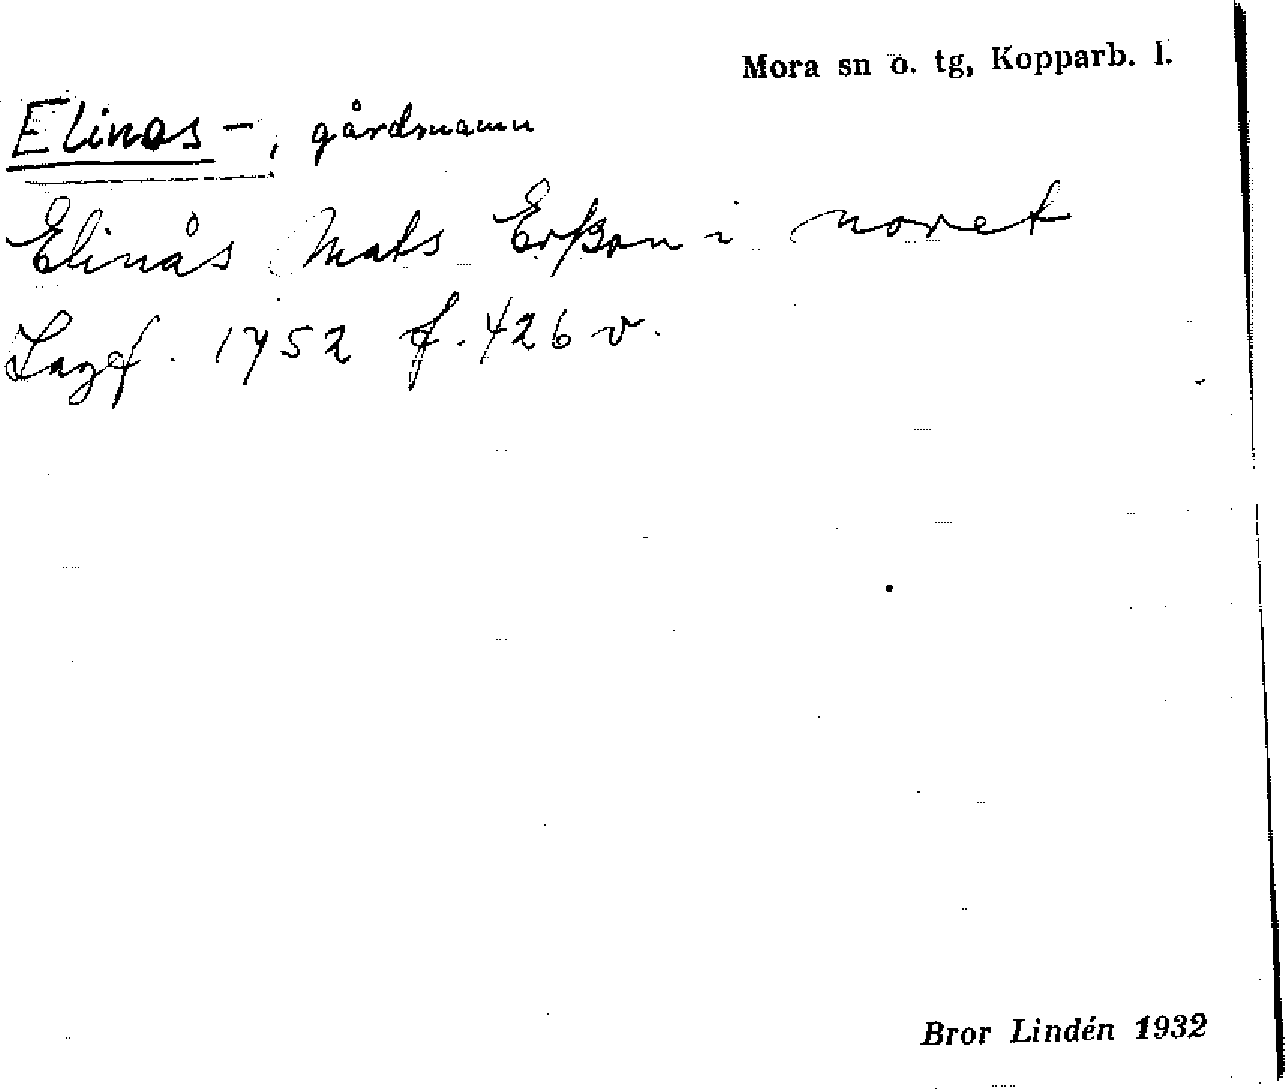 Mora sn o. tg, Kopparb. l.
Elinas-, gårdsnamn
Elinås Mats Erßon i noret
Lagf. 1752 f. 426 v.
Bror Lindén 1932